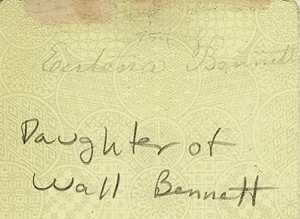 Bennett
Daughter of
Wall Bennett